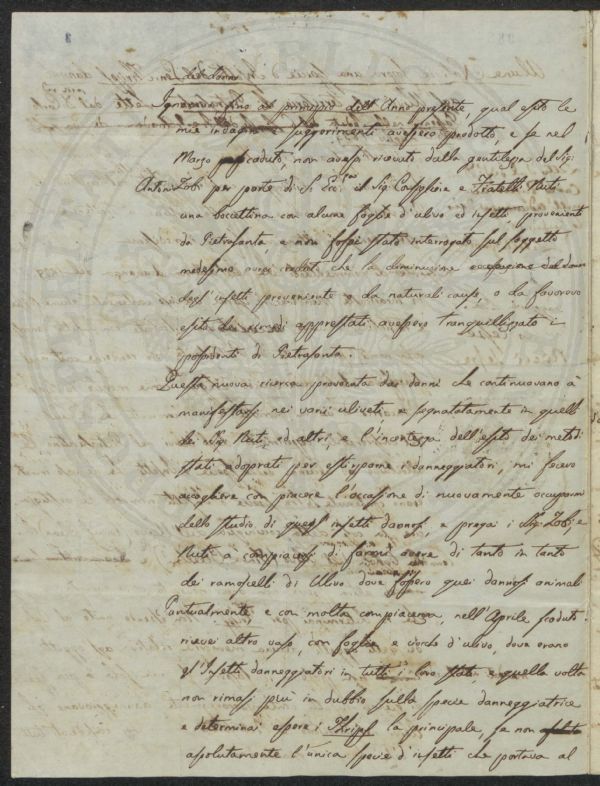 Ignoravo fino ai principj dell'Anno presente, qual esito le
mie indagini e suggerimenti avessero prodotto, e se nel
Marzo scaduto, non avessi ricevuti dalla gentilezza del Sig:
Antonio Zobi per parte di S. Ecc:za il Sig. Consigliere e Fratelli
una boccettina con alcune foglie d'ulivo ed insetti provenienti
da Pietrasanta, e non fossi stato interrogato sul soggetto
medesimo avrei creduto che la diminuzione del danno
degl'insetti proveniente o da naturali cause, o da favorevo
esito dei rimedi apprestati avessero tranquillizzato i
possidenti di Pietrasanta.
Questa nuova ricerca provocata dai danni che continuovano à
manifestarsi nei varii uliveti, e segnatatamente in quelli
dei Sig. ed altri, e l'incertezza dell'esito dei metodi
stati adoprati per estirparne i danneggiatori, mi fecero
accogliere con piacere l'occasione di nuovamente occuparmi
dello studio di quegl'insetti dannosi, e pregai i Sig: Zobi, e
à compiacersi di farmi avere di tanto in tanto
dei ramoscelli di Ulivo dove fossero quei dannosi animali
Puntualmente e con molta compiacenza, nell'Aprile scaduto
ricevei altro vaso, con foglie e ciocche d'ulivo, dove erano
gl'Insetti danneggiatori in tutti i loro stati, e quella volta
non rimasi più in dubbio sulla specie danneggiatrice
e determinai essere i Thrips la principale, se non
assolutamente l'unica specie d'insetti che portava al